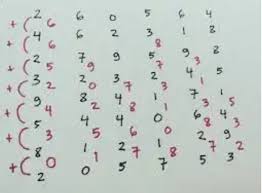 2 6 0 5 6 4
+( 6
4 6 2 3 1 8
+( 6 8
2 7 9 5
+( 5 3
3 2 3 2 4 5
+( 2 0 7
9 8 4 1 7 1
+( 4 2 8 1 3 5
5 4 4 0 6 8 4
+( 3 5 6 0 2 9 3
8 1 2 1 7 7 2
+( 0 1 7 8
2 0 5 7 5 3